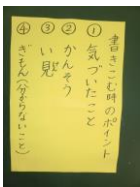 書きこむ時のポイント
① 気づいたこと
② かんそう
③ い見
④ ぎもん(分からないこと)